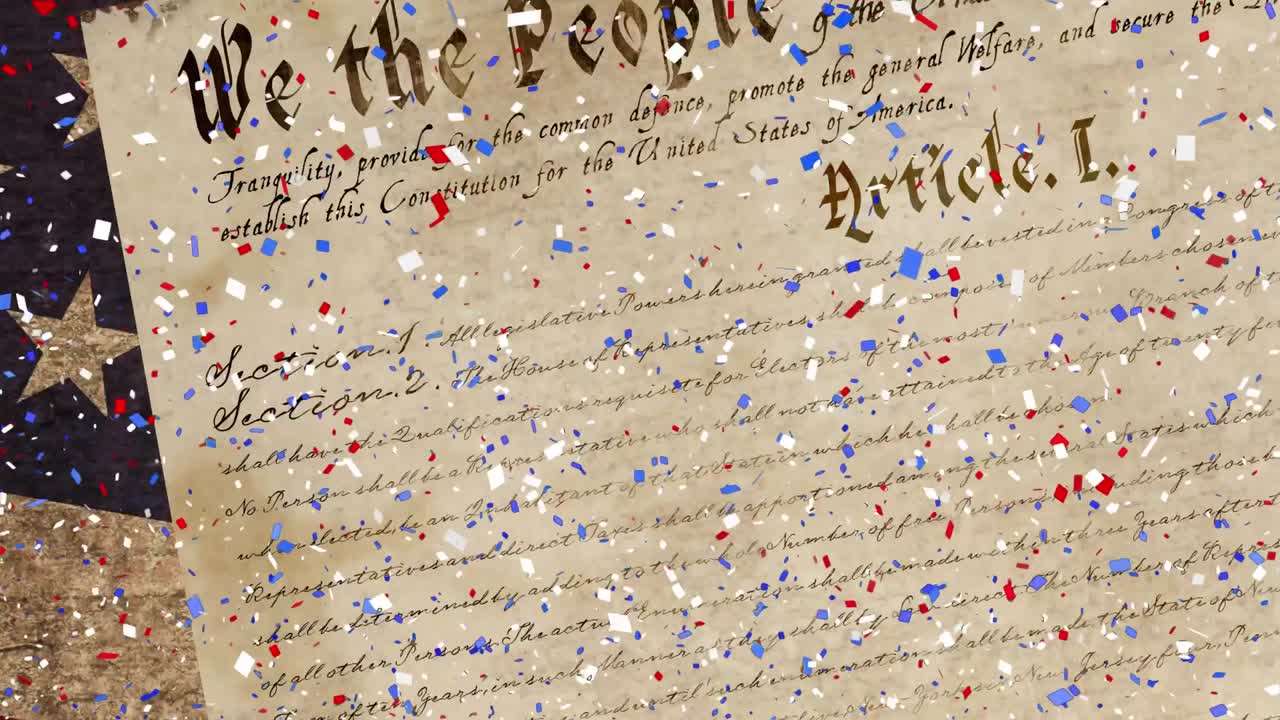 We the People of the
Tranquility, provide for the common defence, promote the general Welfare, and secure the
establish this Constitution for the United States of America.
Article. I.
Section. 1 All legislative Powers herein granted shall be vested in a Congress of
Section. 2. The House of Representatives shall be composed of Members chosen
shall have the Qualifications requisite for Electors of the most numerous Branch of
No Person shall be a Representative who shall not have attained to the Age of twenty
who elected, be an Inhabitant of that State in which he shall be chosen
Representatives and direct Taxes shall be apportioned among the several States which
shall be determined by adding to the whole Number of free Persons, including those
of all other Persons. The actual Enumeration shall be made within three Years after
of ten Years, in such Manner as they shall by Law direct. The Number of
and until such enumeration shall be made, the State of New
New-York six, New Jersey four,